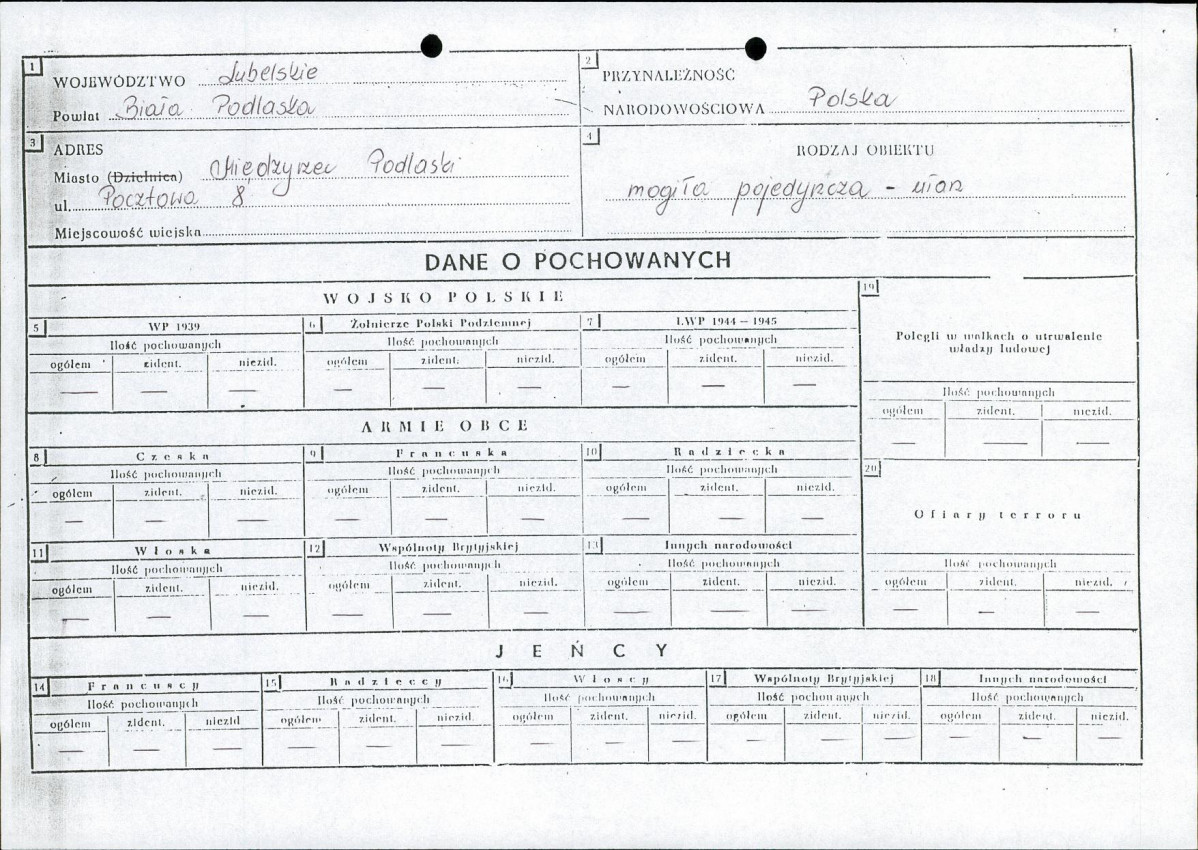 1
WOJEWÓDZTWO Lubelskie
Powiat Biała Podlaska
2
PRZYNALEŻNOŚĆ
NARODOWOŚCIOWA Polska
3
ADRES
Miasto (Dzielnica) Międzyrzec Podlaski
ul. Pocztowa 8
Miejscowość wiejska
4
RODZAJ OBIEKTU
mogiła pojedyncza - ułan
DANE O POCHOWANYCH
WOJSKO POLSKIE
5 WP 1939
Ilość pochowanych
ogółem zident. niezid.
— — —
6 Żołnierze Polski Podziemnej
Ilość pochowanych
ogółem zident. niezid.
—
7 LWP 1944 – 1945
Ilość pochowanych
ogółem zident. niezid.
— — —
19
Polegli w walkach o utrwalenie
władzy ludowej
Ilość pochowanych
ogółem zident. niezid.
— — —
ARMIE OBCE
8 Czeska
Ilość pochowanych
ogółem zident. niezid.
— — —
9 Francuska
Ilość pochowanych
ogółem zident. niezid.
— — —
10 Radziecka
Ilość pochowanych
ogółem zident. niezid.
— — —
20
Ofiary terroru
Ilość pochowanych
ogółem zident. niezid.
— — —
11 Włoska
Ilość pochowanych
ogółem zident. niezid.
— — —
12 Wspólnoty Brytyjskiej
Ilość pochowanych
ogółem zident. niezid.
— — —
13 Innych narodowości
Ilość pochowanych
ogółem zident. niezid.
— — —
JEŃCY
14 Francuscy
Ilość pochowanych
ogółem zident. niezid
— — —
15 Radzieccy
Ilość pochowanych
ogółem zident. niezid.
— — —
16 Włoscy
Ilość pochowanych
ogółem zident. niezid.
— — —
17 Wspólnoty Brytyjskiej
Ilość pochowanych
ogółem zident. niezid.
— — —
18 Innych narodowości
Ilość pochowanych
ogółem zident. niezid.
— — —